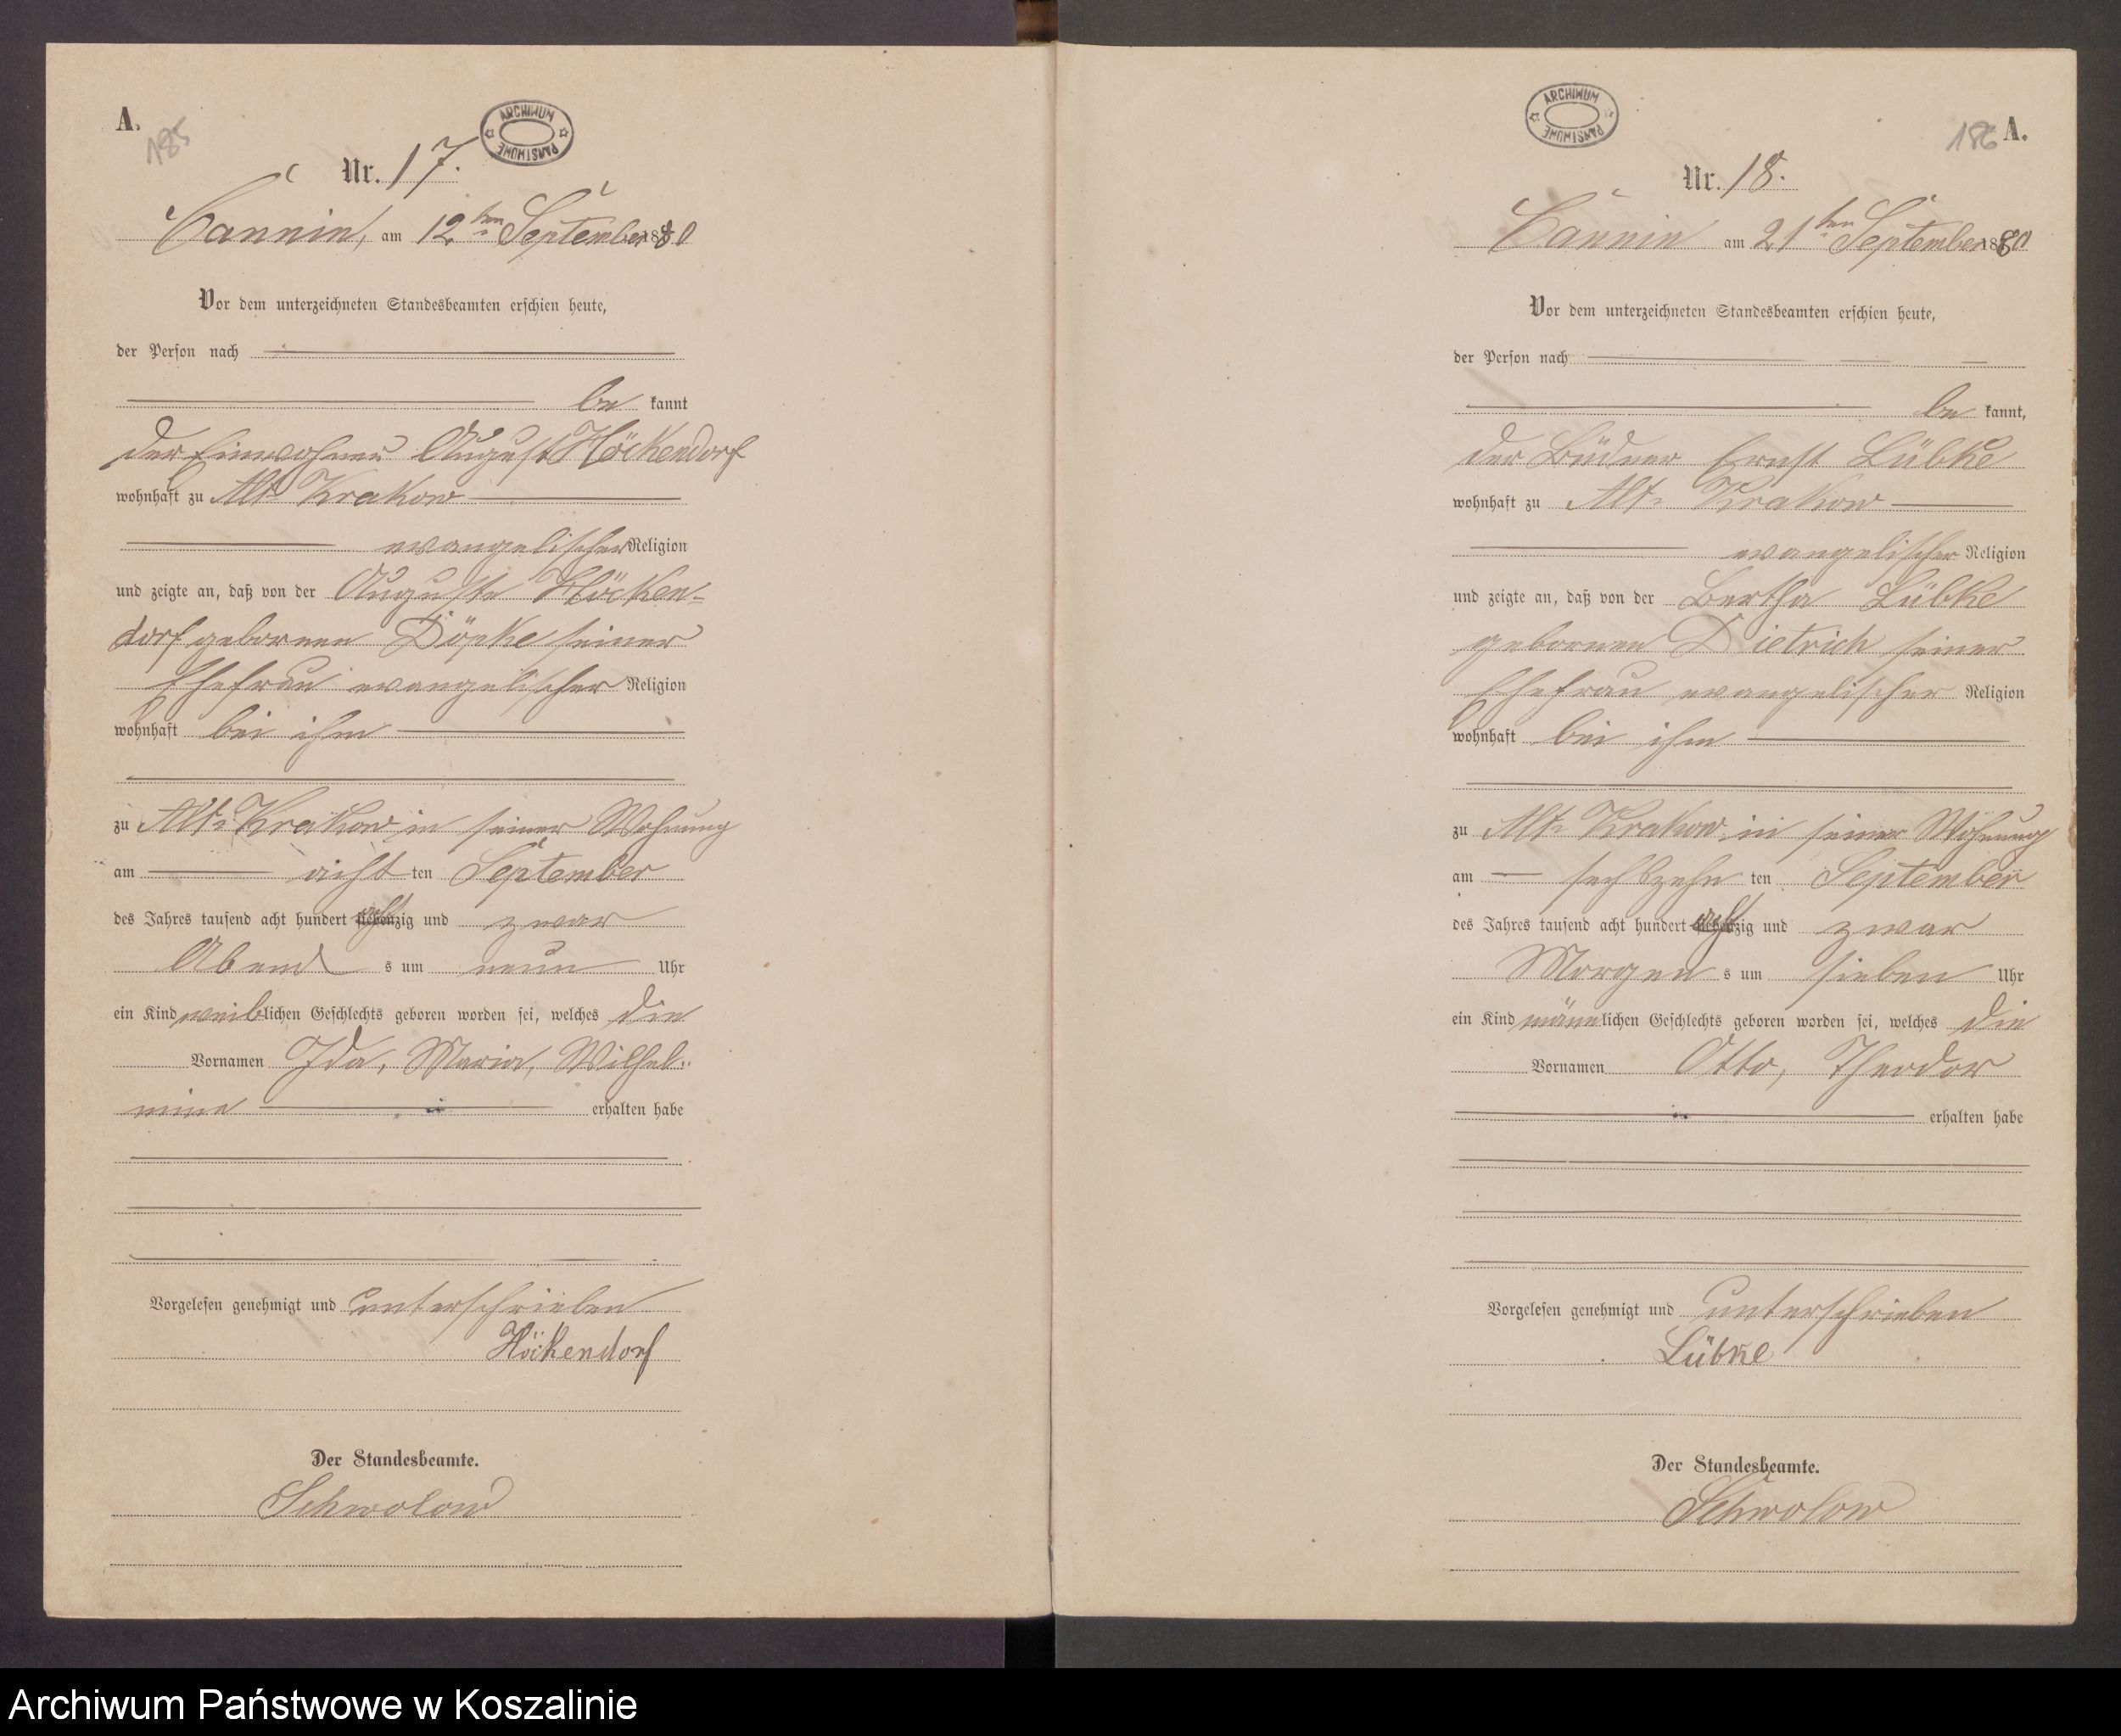 A.
185
ARCHIWUM PAŃSTWOWE
Nr. 17.
Cannin, am 12ten September 1880
Vor dem unterzeichneten Standesbeamten erschien heute,
der Person nach
be kannt
der Einwohner August Höckendorf
wohnhaft zu Alt-Krakow
evangelischer Religion
und zeigte an, daß von der Auguste Höcken-
dorf gebornen Döpke seiner
Ehefrau evangelischer Religion
wohnhaft bei ihm
zu Alt-Krakow in seiner Wohnung
am acht ten September
des Jahres tausend acht hundert achtzig und zwar
Abend s um neun Uhr
ein Kind weiblichen Geschlechts geboren worden sei, welches die
Vornamen Ida, Maria, Wilhel-
mine erhalten habe
Vorgelesen genehmigt und unterschrieben
Höckendorf
Der Standesbeamte.
Schwolow
ARCHIWUM PAŃSTWOWE
186 A.
Nr. 18.
Cannin am 21ten September 1880
Vor dem unterzeichneten Standesbeamten erschien heute,
der Person nach
be kannt,
der Büdner Ernst Lübke
wohnhaft zu Alt-Krakow
evangelischer Religion
und zeigte an, daß von der Bertha Lübke
gebornen Dietrich seiner
Ehefrau evangelischer Religion
wohnhaft bei ihm
zu Alt-Krakow in seiner Wohnung
am sechszehn ten September
des Jahres tausend acht hundert achtzig und zwar
Morgen s um sieben Uhr
ein Kind männlichen Geschlechts geboren worden sei, welches die
Vornamen Otto, Theodor
erhalten habe
Vorgelesen genehmigt und unterschrieben
Lübke
Der Standesbeamte.
Schwolow
Archiwum Państwowe w Koszalinie